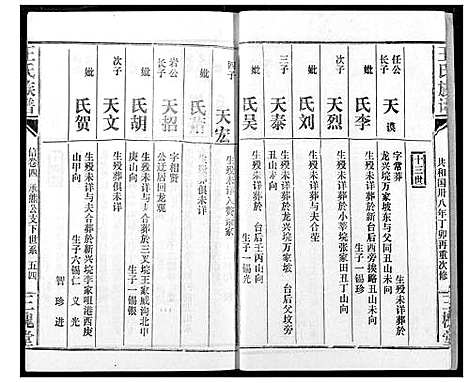 王氏族谱
共和国卅八年丁卯再重次修
三槐堂
十三世
任公
长子
天漠
字常
葬龙兴垸万家坡东与父同丑山未向
妣
氏李
生殁未详葬於新台后西旁挨路丑山未向
生子一 锡珍
次子
天烈
生殁未详葬於小莘垸张家田丑丁山未向
妣
氏刘
生殁葬未详与夫合茔
三子
天泰
生殁未详葬於龙兴垸万家坡 台后丑山未向
妣
氏吴
生殁未详葬於 台后壬丙山向
生子一 锡光
四子
天宏
生殁未详
妣
氏
岩公
长子
天招
字相贤
公迁居回龙观
生殁葬俱未详
妣
氏胡
生殁未详与夫合葬於三叉垸王家威沟北甲庚山向
生子一 锡银
次子
天文
生殁葬俱未详
妣
氏贺
生殁未详与夫合葬於新兴垸李家咀港西庚山甲向
生子六 锡仁 义 光 智 珍 进
王氏族谱
信卷四 承熊公支下世系 五四
三槐堂